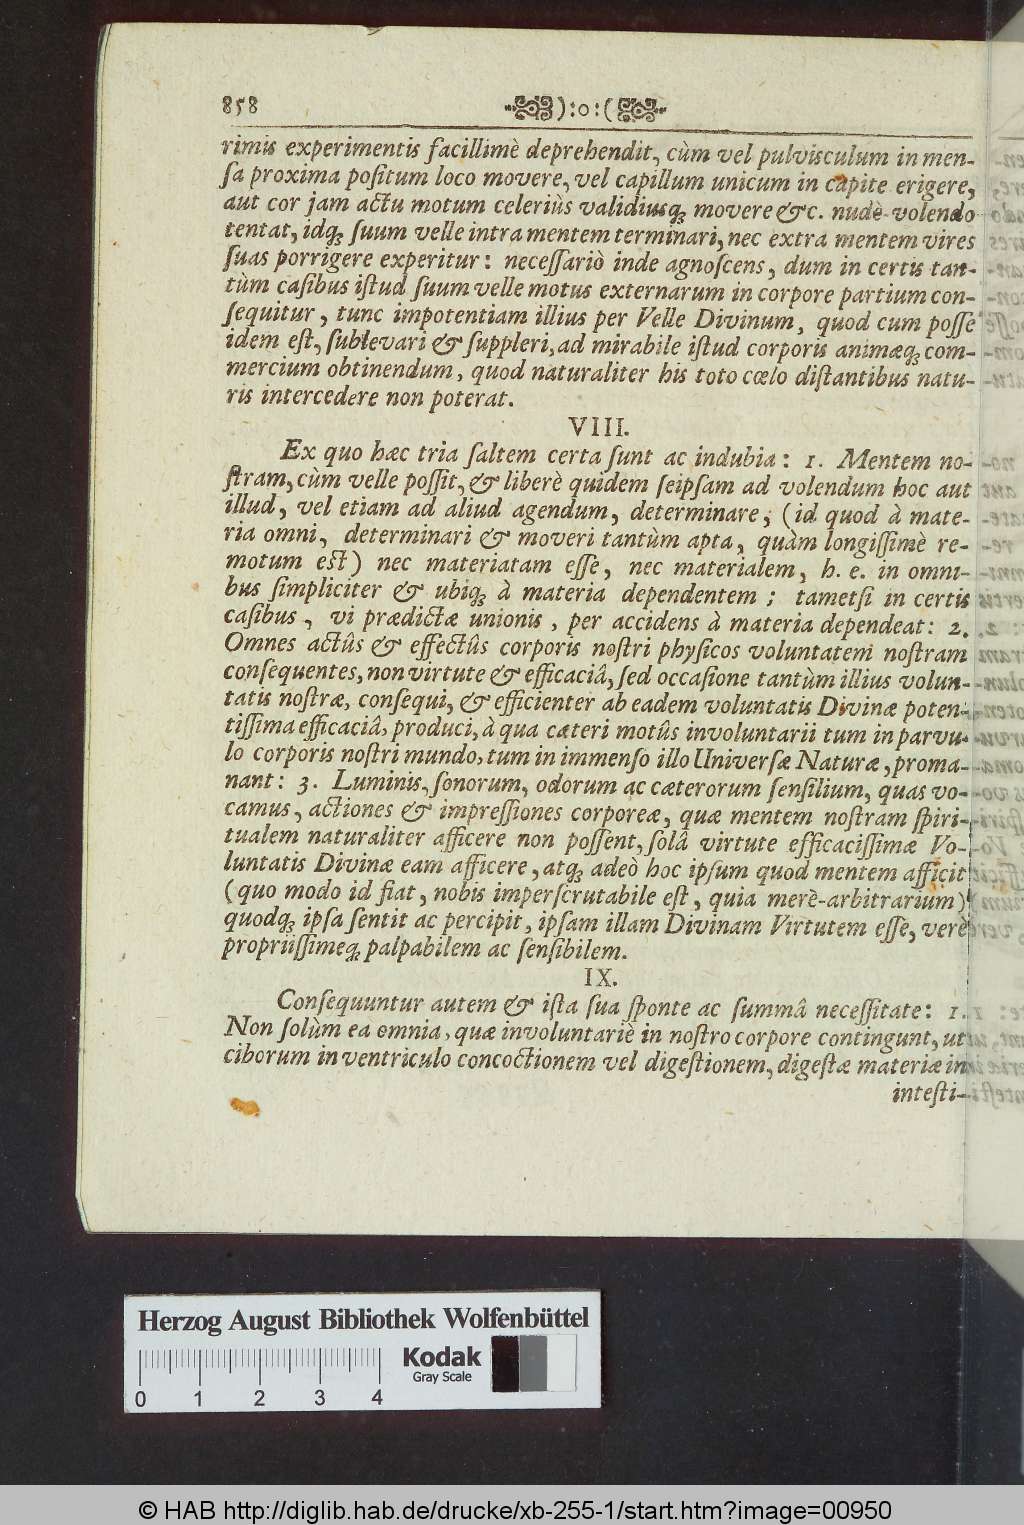 858 ):o:(
rimis experimentis facillimè deprehendit, cùm vel pulvisculum in men-
ſa proxima poſitum loco movere, vel capillum unicum in capite erigere,
aut cor jam actu motum celeriùs validiusq; movere &c. nudè volendo
tentat, idq; ſuum velle intra mentem terminari, nec extra mentem vires
ſuas porrigere experitur: neceſſariò inde agnoſcens, dum in certis tan-
tùm caſibus iſtud ſuum velle motus externarum in corpore partium con-
ſequitur, tunc impotentiam illius per Velle Divinum, quod cum poſſe
idem eſt, ſublevari & ſuppleri, ad mirabile iſtud corporis animæq; com-
mercium obtinendum, quod naturaliter his toto cœlo diſtantibus natu-
ris intercedere non poterat.
VIII.
Ex quo hæc tria ſaltem certa ſunt ac indubia: 1. Mentem no-
ſtram, cùm velle poſſit, & liberè quidem ſeipſam ad volendum hoc aut
illud, vel etiam ad aliud agendum, determinare, (id quod à mate-
ria omni, determinari & moveri tantùm apta, quàm longiſſimè re-
motum eſt) nec materiatam eſſe, nec materialem, h. e. in omni-
bus ſimpliciter & ubiq; à materia dependentem; tametſi in certis
caſibus, vi prædictæ unionis, per accidens à materia dependeat: 2.
Omnes actûs & effectûs corporis noſtri phyſicos voluntatem noſtram
conſequentes, non virtute & efficaciâ, ſed occaſione tantùm illius volun-
tatis noſtræ, conſequi, & efficienter ab eadem voluntatis Divinæ poten-
tiſſima efficaciâ, produci, à qua cæteri motûs involuntarii tum in parvu-
lo corporis noſtri mundo, tum in immenſo illo Univerſæ Naturæ, proma-
nant: 3. Luminis, ſonorum, odorum ac cæterorum ſenſilium, quas vo-
camus, actiones & impreſſiones corporeæ, quæ mentem noſtram ſpiri-
tualem naturaliter afficere non poſſent, ſolâ virtute efficaciſſimæ Vo-
luntatis Divinæ eam afficere, atq; adeò hoc ipſum quod mentem afficit
(quo modo id fiat, nobis imperſcrutabile eſt, quia merè-arbitrarium)
quodq; ipſa ſentit ac percipit, ipſam illam Divinam Virtutem eſſe, verè
propriiſſimeq; palpabilem ac ſenſibilem.
IX.
Conſequuntur autem & iſta ſua ſponte ac ſummâ neceſſitate: 1.
Non ſolùm ea omnia, quæ involuntariè in noſtro corpore contingunt, ut
ciborum in ventriculo concoctionem vel digeſtionem, digeſtæ materiæ in
inteſti-
Herzog August Bibliothek Wolfenbüttel
Kodak
Gray Scale
0 1 2 3 4
© HAB http://diglib.hab.de/drucke/xb-255-1/start.htm?image=00950